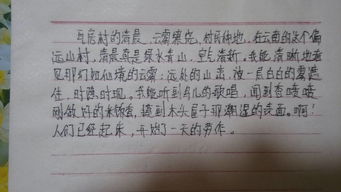 瓦房村的清晨,云雾缭绕,村民种地,在云南的这个偏
远山村,清晨真是绿水青山,空气清新,我能清晰地看
见那幻如仙境的云雾;远处的山峦,被一层白白的雾遮
住,时隐时现。我能听到鸟儿的歌唱,闻到香喷喷
刚做好的米饭香,摸到木头屋子那潮湿的表面。啊!
人们已经起床,开始了一天的劳作。